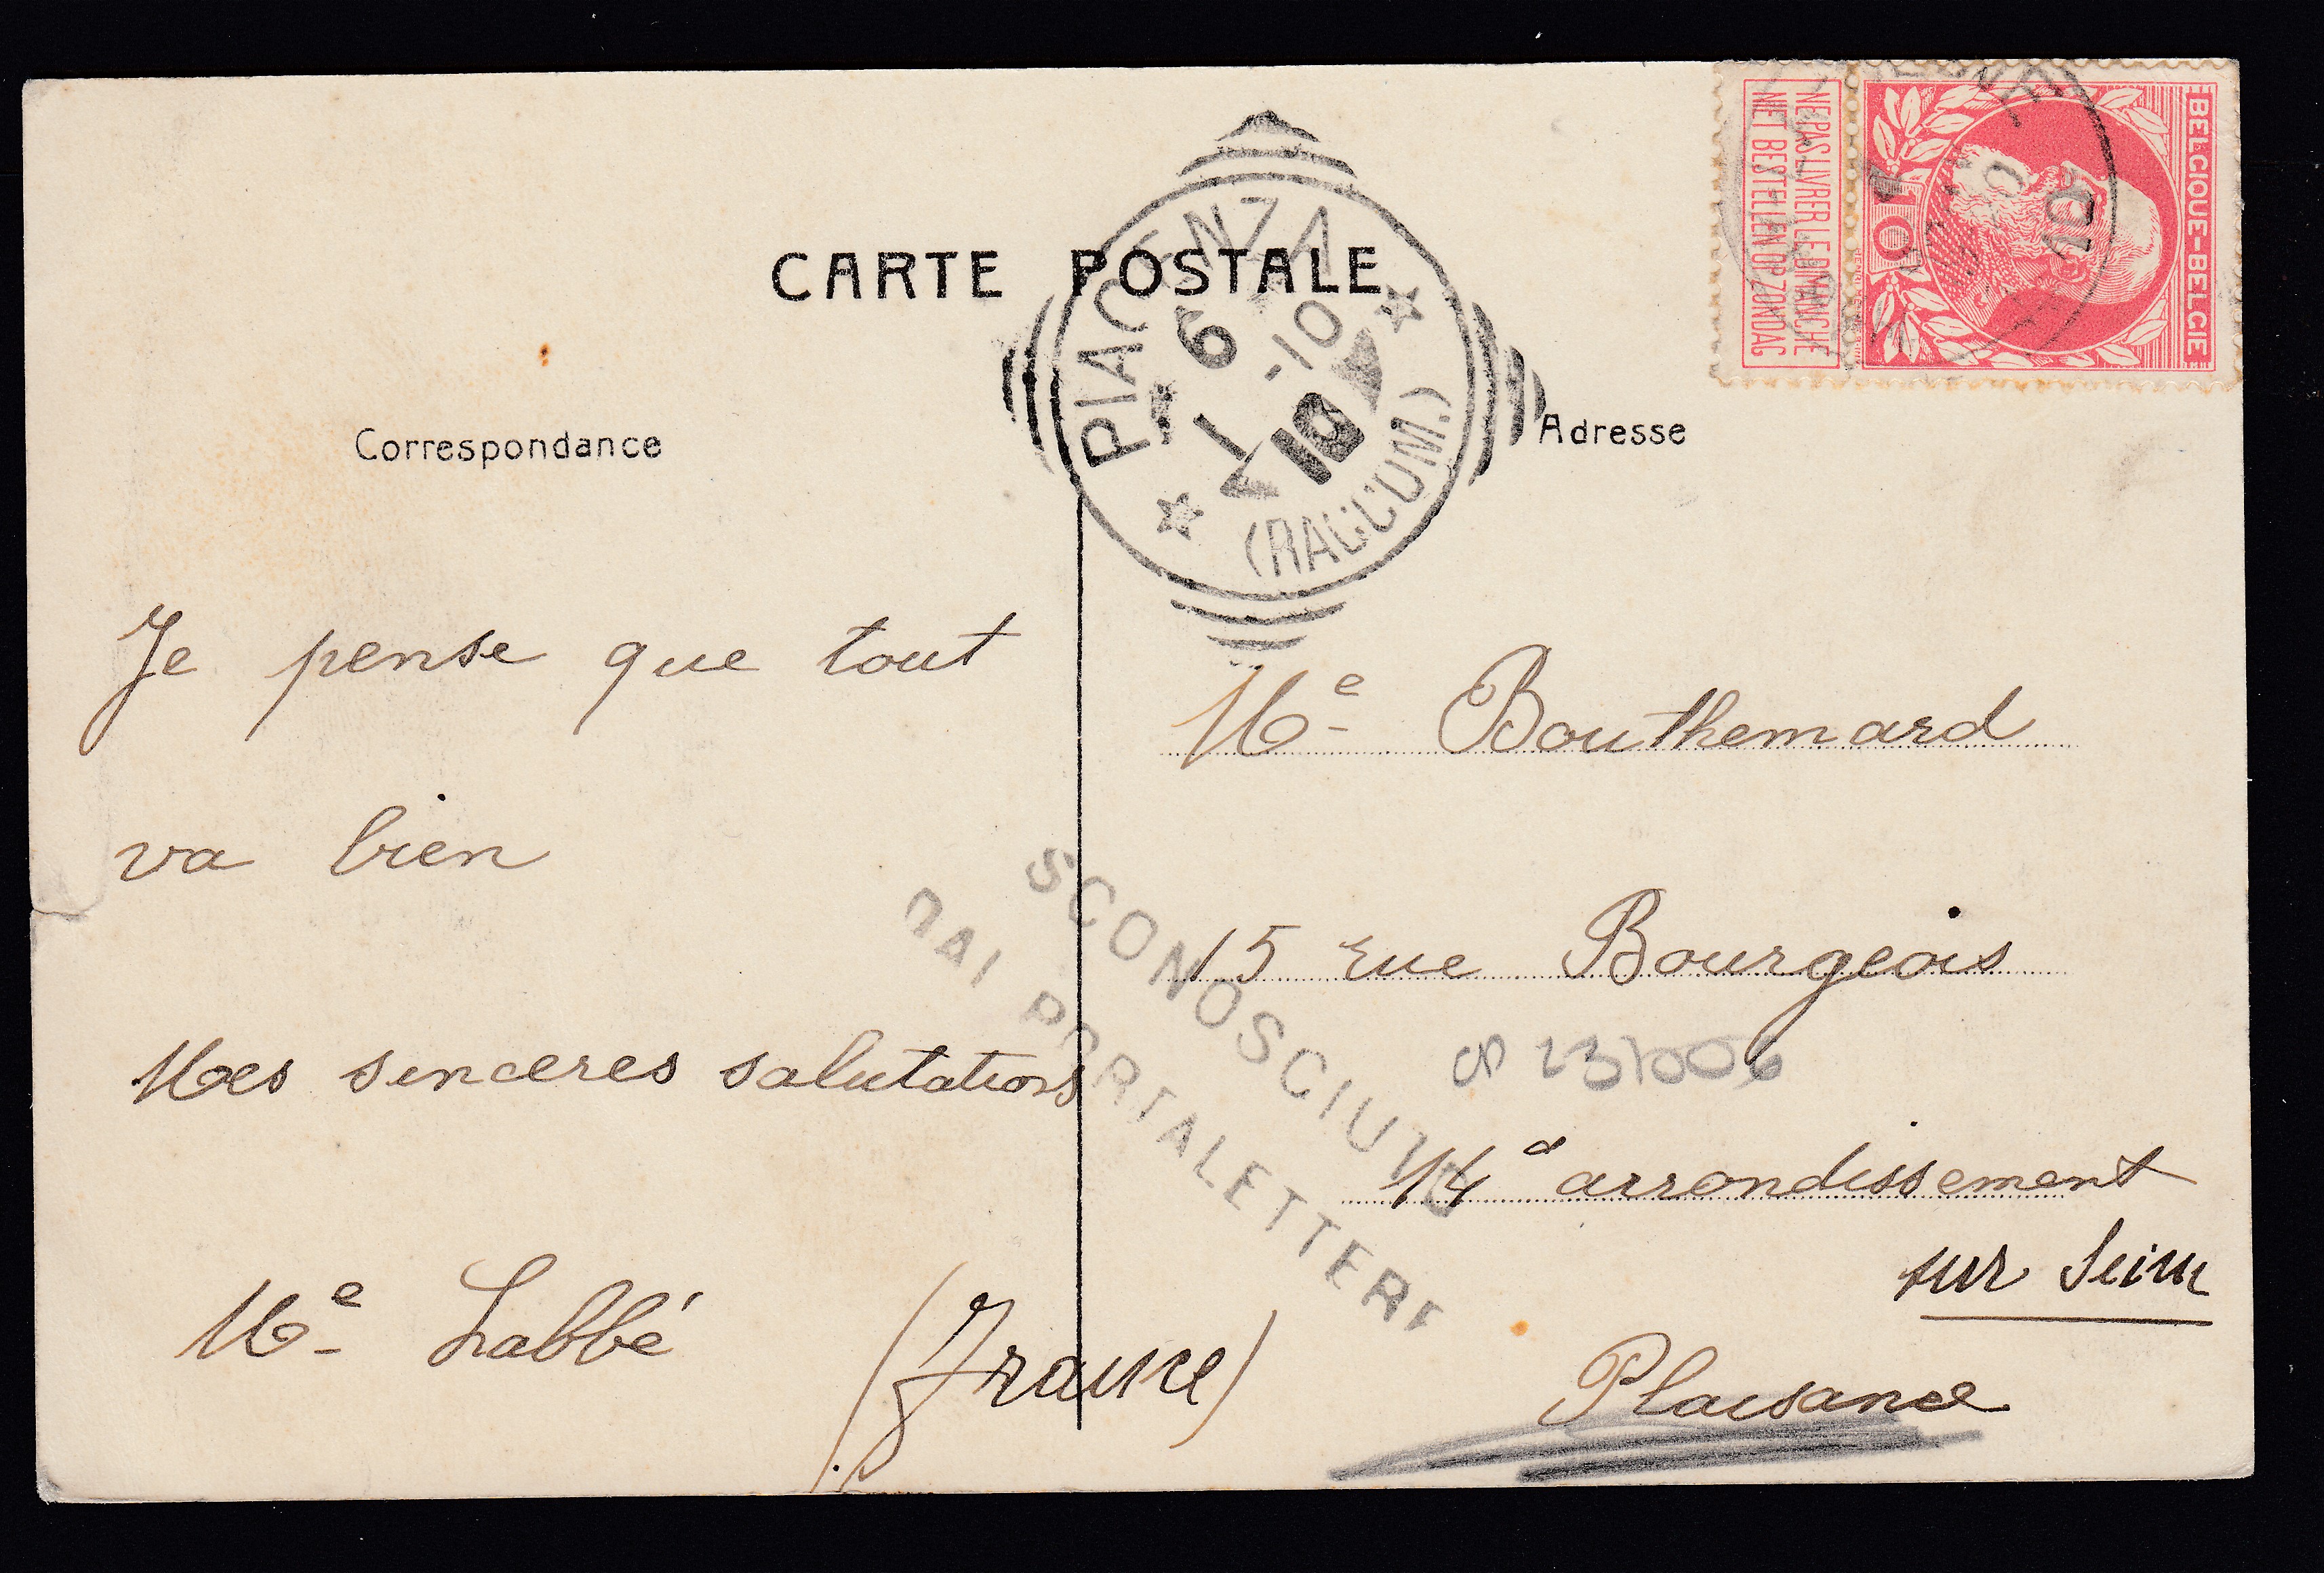 CARTE POSTALE
BELGIQUE-BELGIE
10
NE PAS LIVRER LE DIMANCHE
NIET BESTELLEN OP ZONDAG
PIACENZA
6 1 -10
10
(RACCOM.)
Correspondance
Adresse
Je pense que tout
va bien
Mes sinceres salutations
Me Labbé
Me Bouthemard
15 rue Bourgeois
8 231006
14e arrondissement
sur Seine
Plaisance
(France)
SCONOSCIUTO
DAI PORTALETTERE